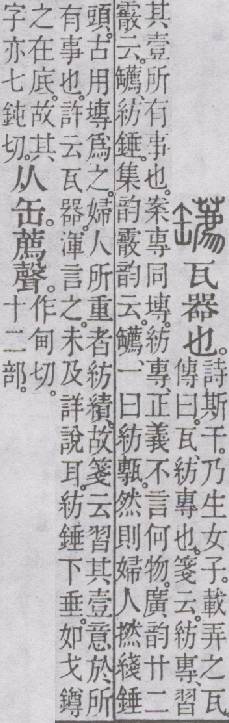 瓦器也。
詩斯干。乃生女子。載弄之瓦
傳曰。瓦、紡專也。箋云。紡專、習
其壹所有事也。案專同塼。紡專正義不言何物。廣韵廿二
霰云。紡錘。集韵霰韵云。一曰紡甎。然則婦人撚綫錘
頭。古用塼爲之。婦人所重者紡績。故箋云習其壹意於所
有事也。許云瓦器。渾言之。未及詳說耳。紡錘下垂。如戈鐏
之在底。故其
字亦七鈍切。
从缶。薦聲。
作甸切。
十二部。